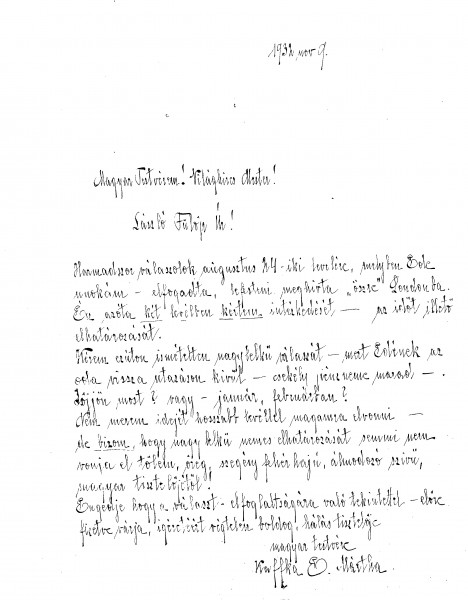 1932 nov 9.
Magyar Testvérem! Világhíres Mester!
László Fülöp Úr!
Harmadszor válaszolok augusztus 24-iki levelére, melyben Ede
unokám – elfogadta, tekinteni meghívta „össze” Londonba.
Én azóta két levélben kértem intézkedését – az időt illető
elhatározását.
Kérem ezúton ismételten nagylelkű válaszát – mert Edének az
oda vissza utazáson kívül – csekély pénzneme marad –.
Jőjjön most? vagy – január, februárban?
Nem merem idejét hosszabb levéllel magamra elvonni –
de bízom, hogy nagylelkű nemes elhatározását semmi nem
vonja el tőlem, öreg, szegény fehérhajú, álmodozó szívű,
magyar tisztelőjétől.
Engedje hogy a választ – elfoglaltságára való tekintettel – előre
fizetve várja, ígéretéért végtelen boldog, hálás tisztelője
magyar testvére
Kraffka E. Mártha.